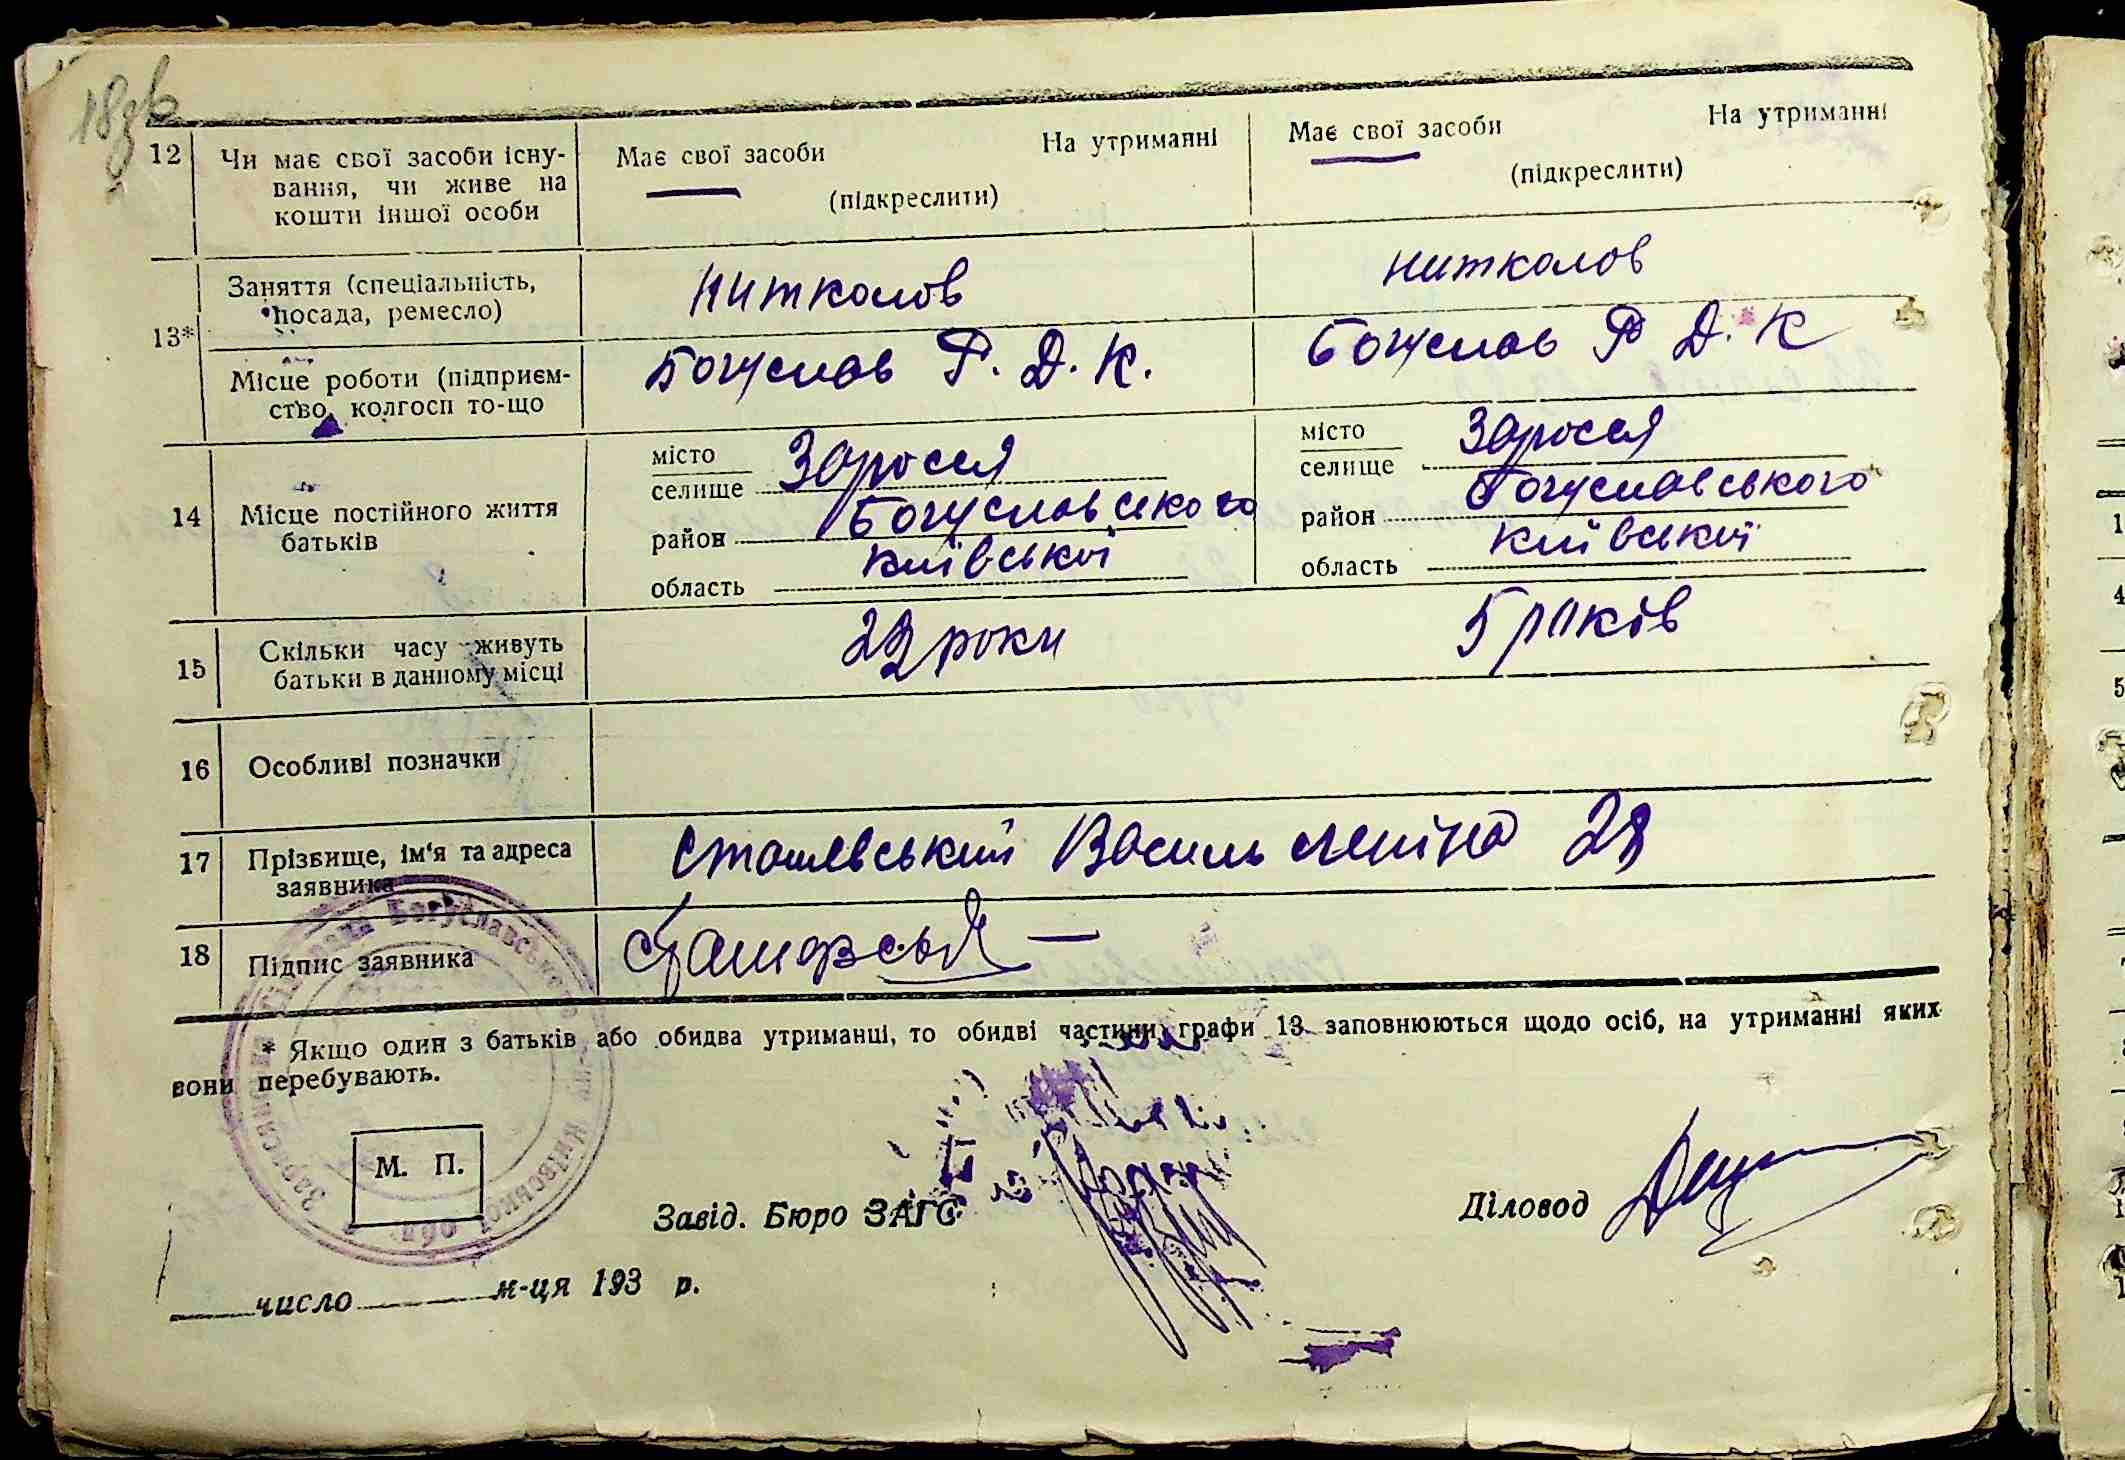 18зв
12 Чи має свої засоби існу-
вання, чи живе на
кошти іншої особи
Має свої засоби На утриманні
(підкреслити)
Має свої засоби На утриманні
(підкреслити)
13* Заняття (спеціальність,
посада, ремесло)
Місце роботи (підприєм-
ство, колгосп то-що
Богуслав Р. Д. К.
Богуслав Р Д. К
14 Місце постійного життя
батьків
місто
селище Заросся
район Богуславського
область Київської
місто
селище Заросся
район Богуславського
область Київської
15 Скільки часу живуть
батьки в данному місці
22 роки
5 років
16 Особливі позначки
17 Прізвище, ім'я та адреса
заявника
Сташевський Василь Леніна 28
18 Підпис заявника
* Якщо один з батьків або обидва утриманці, то обидві частини графи 13 заповнюються щодо осіб, на утриманні яких
вони перебувають.
М. П.
Завід. Бюро ЗАГС
Діловод
число м-ця 193 р.